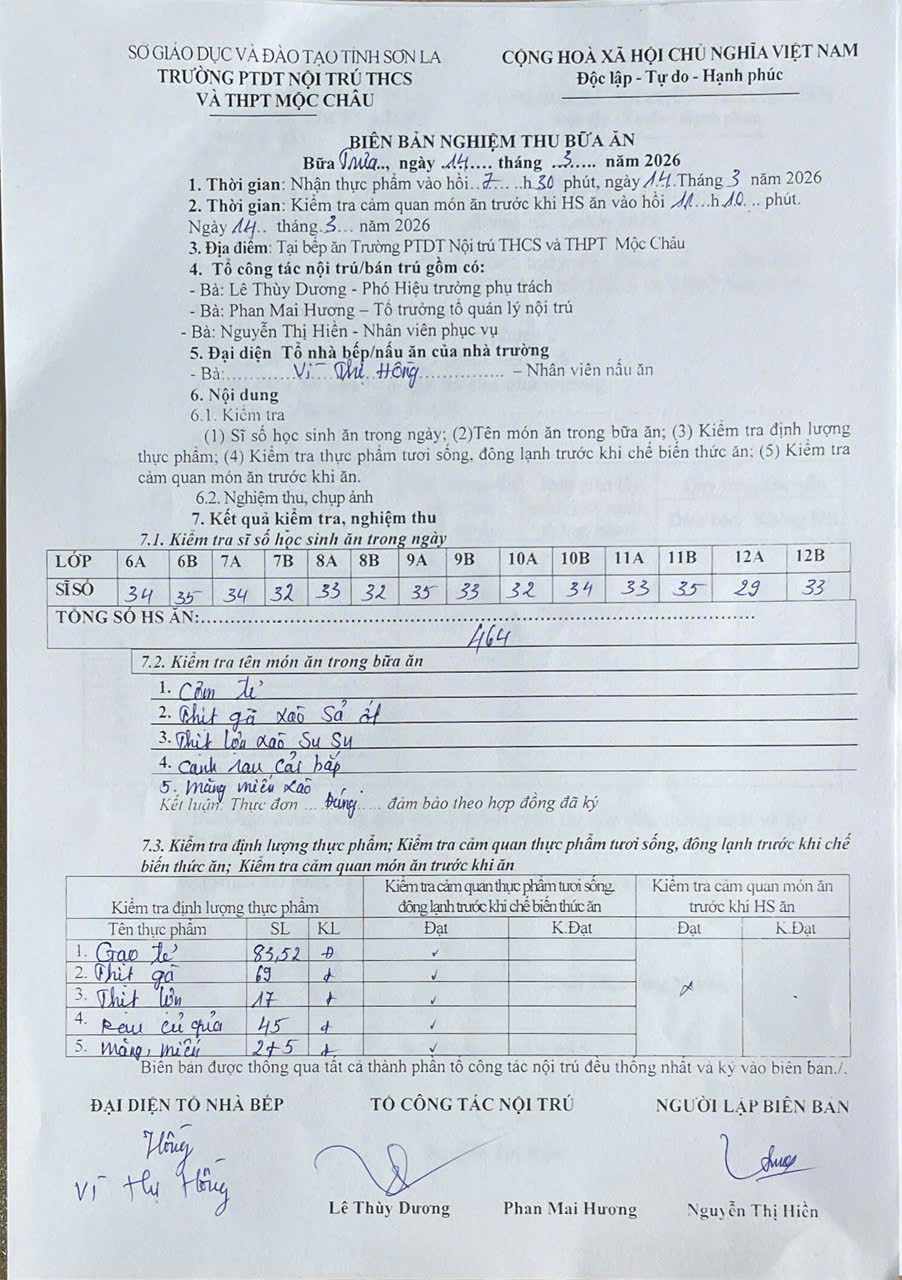 SỞ GIÁO DỤC VÀ ĐÀO TẠO TỈNH SƠN LA
TRƯỜNG PTDT NỘI TRÚ THCS
VÀ THPT MỘC CHÂU
CỘNG HOÀ XÃ HỘI CHỦ NGHĨA VIỆT NAM
Độc lập - Tự do - Hạnh phúc
BIÊN BẢN NGHIỆM THU BỮA ĂN
Bữa Trưa.., ngày .14.... tháng ..3..... năm 2026
1. Thời gian: Nhận thực phẩm vào hồi..7.....h 30 phút, ngày 14.Tháng 3 năm 2026
2. Thời gian: Kiểm tra cảm quan món ăn trước khi HS ăn vào hồi 11...h.10... phút.
Ngày 14.. tháng.3... năm 2026
3. Địa điểm: Tại bếp ăn Trường PTDT Nội trú THCS và THPT Mộc Châu
4. Tổ công tác nội trú/bán trú gồm có:
- Bà: Lê Thùy Dương - Phó Hiệu trưởng phụ trách
- Bà: Phan Mai Hương – Tổ trưởng tổ quản lý nội trú
- Bà: Nguyễn Thị Hiền - Nhân viên phục vụ
5. Đại diện Tổ nhà bếp/nấu ăn của nhà trường
- Bà:............Vì Thị Hồng................ – Nhân viên nấu ăn
6. Nội dung
6.1. Kiểm tra
(1) Sĩ số học sinh ăn trong ngày; (2)Tên món ăn trong bữa ăn; (3) Kiểm tra định lượng
thực phẩm; (4) Kiểm tra thực phẩm tươi sống, đông lạnh trước khi chế biến thức ăn; (5) Kiểm tra
cảm quan món ăn trước khi ăn.
6.2. Nghiệm thu, chụp ảnh
7. Kết quả kiểm tra, nghiệm thu
7.1. Kiểm tra sĩ số học sinh ăn trong ngày
LỚP 6A 6B 7A 7B 8A 8B 9A 9B 10A 10B 11A 11B 12A 12B
SĨ SỐ 34 35 34 32 33 32 35 33 32 34 33 35 29 33
TỔNG SỐ HS ĂN:........................................
464
7.2. Kiểm tra tên món ăn trong bữa ăn
1. Cơm tẻ
2. Thịt gà xào sả ớt
3. Thịt lợn xào su su
4. Canh rau cải bắp
5. Măng miến xào
Kết luận: Thực đơn ....Đúng..... đảm bảo theo hợp đồng đã ký
7.3. Kiểm tra định lượng thực phẩm; Kiểm tra cảm quan thực phẩm tươi sống, đông lạnh trước khi chế
biến thức ăn; Kiểm tra cảm quan món ăn trước khi ăn
Kiểm tra định lượng thực phẩm
Kiểm tra cảm quan thực phẩm tươi sống,
đông lạnh trước khi chế biến thức ăn
Kiểm tra cảm quan món ăn
trước khi HS ăn
Tên thực phẩm SL KL Đạt K.Đạt Đạt K.Đạt
1. Gạo tẻ 83,52 Đ ✓
2. Thịt gà 69 đ ✓
3. Thịt lợn 17 đ ✓
4. Rau củ quả 45 đ ✓
5. Măng, miến 2+5 đ ✓
Biên bản được thông qua tất cả thành phần tổ công tác nội trú đều thống nhất và ký vào biên bản./.
ĐẠI DIỆN TỔ NHÀ BẾP TỔ CÔNG TÁC NỘI TRÚ NGƯỜI LẬP BIÊN BẢN
Hồng
Vì Thị Hồng
Lê Thùy Dương Phan Mai Hương Nguyễn Thị Hiền